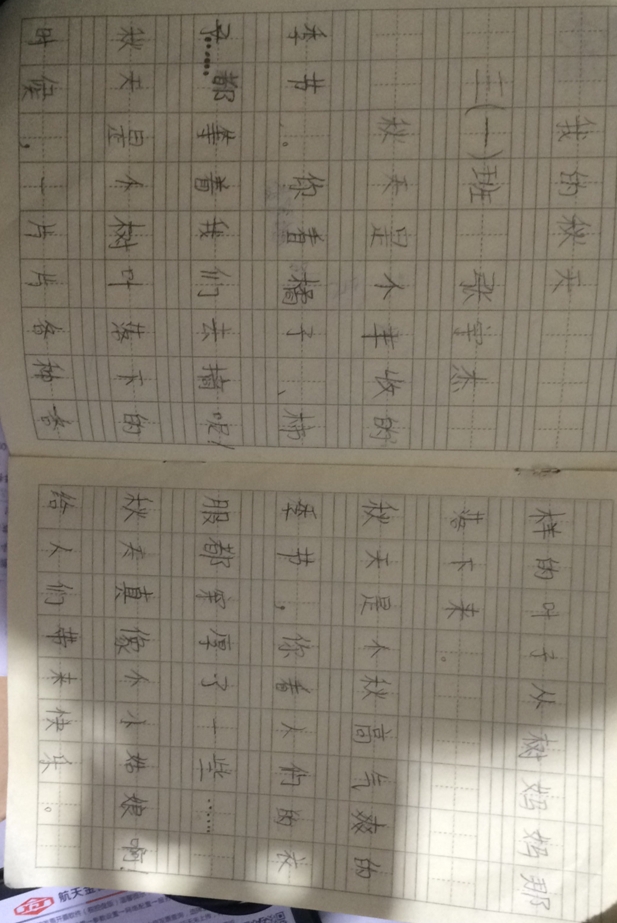 我的秋天
二(一)班 张宇杰
秋天是个丰收的
季节。你看橘子、柿
子……都等着我们去摘呢!
秋天是个树叶落下的
时候,一片片各种各
样的叶子从树妈妈那
落下来。
秋天是个秋高气爽的
季节,你看人们的衣
服都穿厚了一些……
秋天真像个小姑娘啊!
给人们带来快乐。
航天金